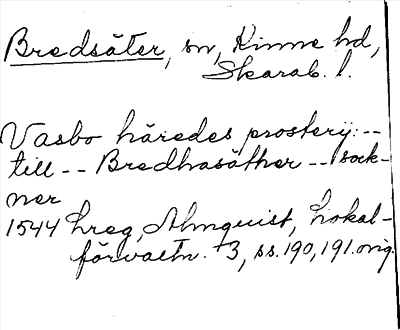 Bredsäter, sn, Kinne hd,
Skarab. l.
Vasbo häredes prosterij: --
till -- Bredhasäther -- sock-
ner
1544 hreg, Almquist, Lokal-
förvaltn. 3, ss. 190, 191. orig.